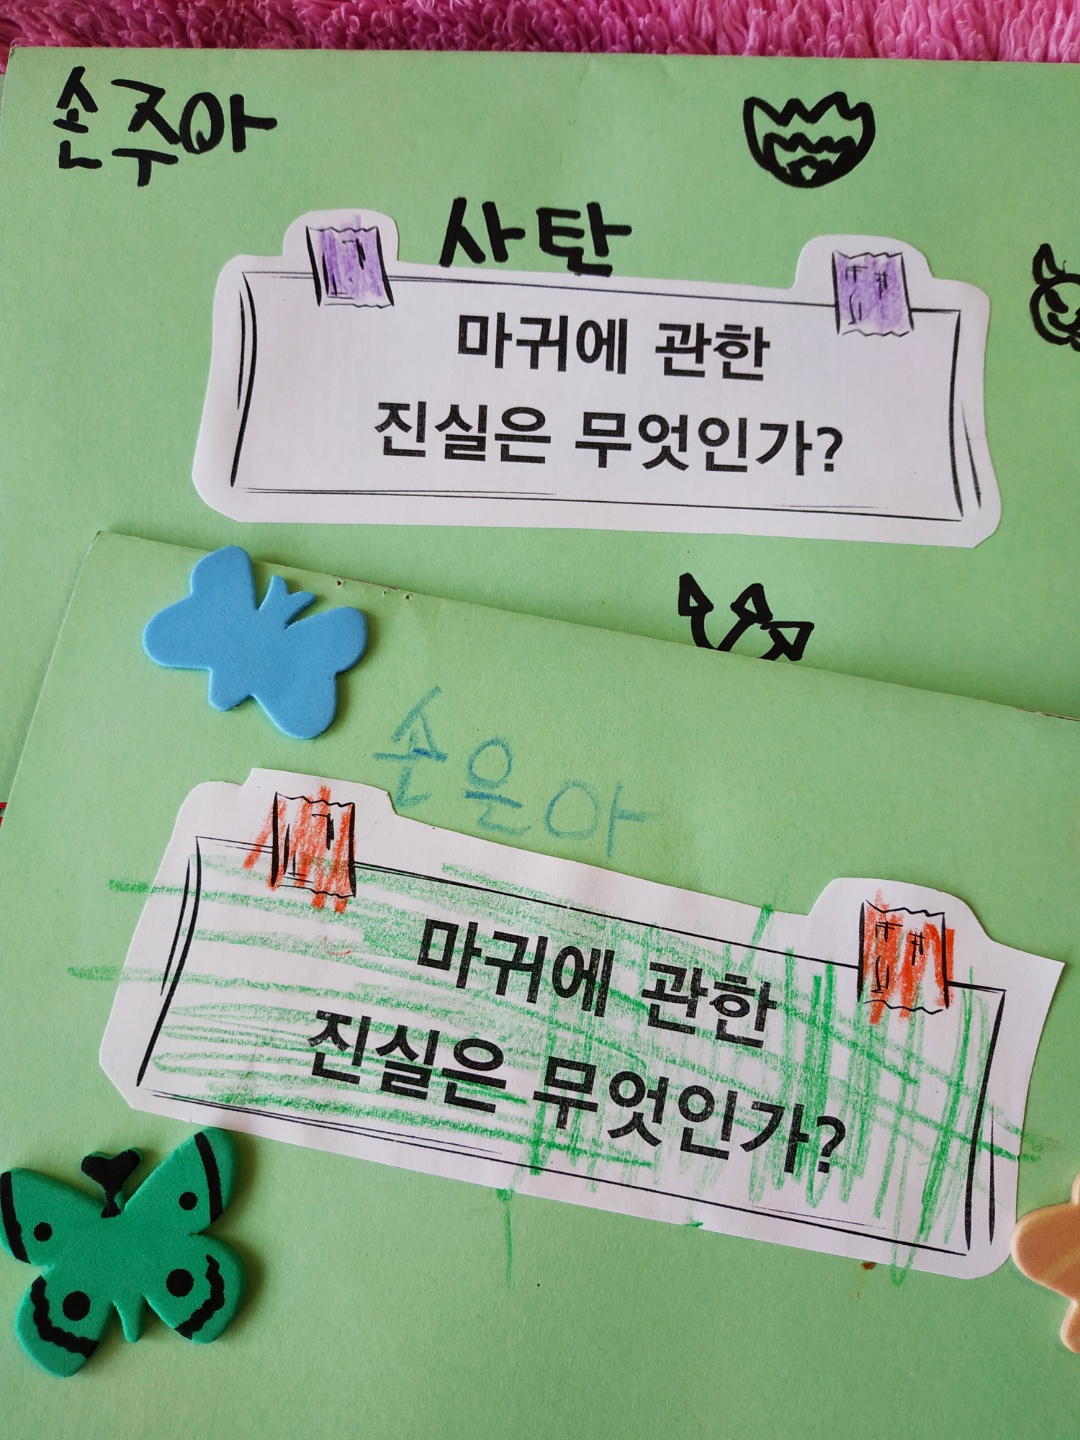 손주아
사탄
마귀에 관한
진실은 무엇인가?
손은아
마귀에 관한
진실은 무엇인가?